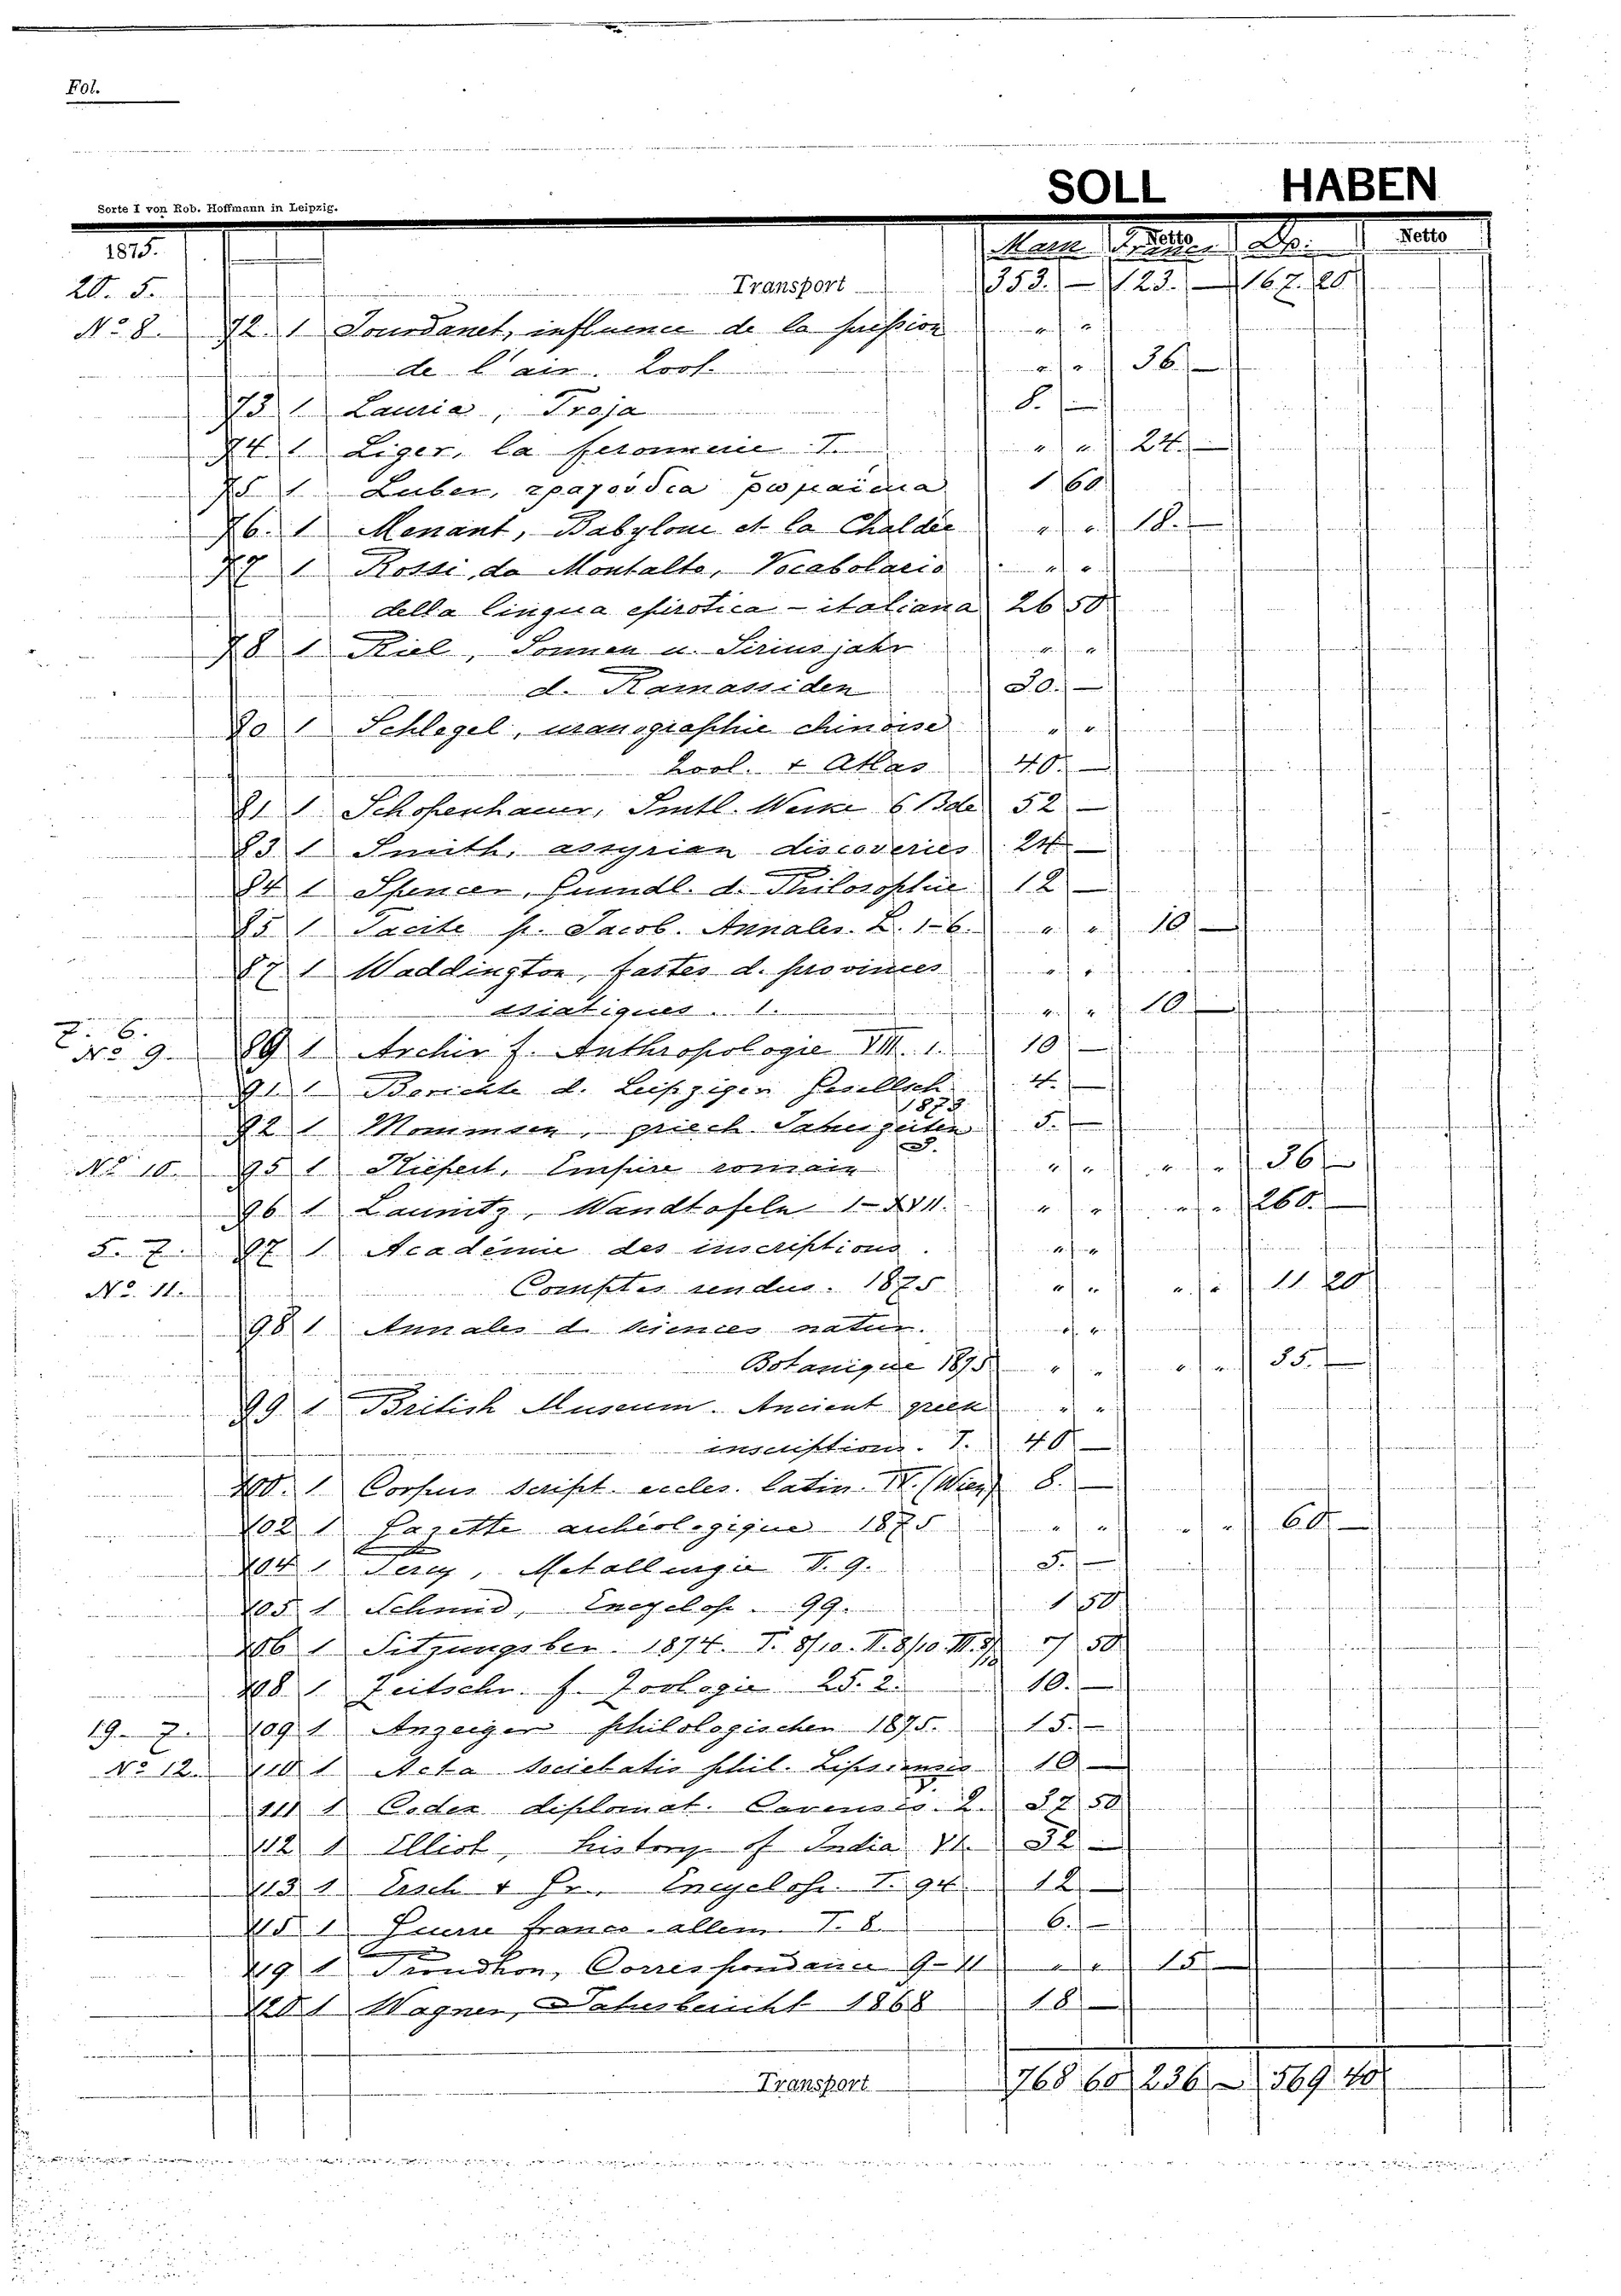 Fol.
SOLL HABEN
Sorte I von Rob. Hoffmann in Leipzig.
1875. Netto Netto
20. 5. Transport 353. — 123. — 167. 20
No 8. 72. 1 Jourdanet, influence de la pression " "
de l'air. " " 36. —
73 1 Lauria, Troja 8. —
74. 1 Liger, la ferronnerie I. " " 24. —
75 1 Luber, 1 60
76. 1 Menant, Babylone et la Chaldée " " 18. —
77 1 Rossi, da Montalto, Vocabolario " "
della lingua epirotica - italiana 26 50
78 1 Riel, Sonnen u. Siriusjahr " "
d. Ramassiden 30. —
80 1 Schlegel, uranographie chinoise " "
2 vol. + Atlas 40. —
81 1 Schopenhauer, Smtl. Werke 6 Bde 52 —
83 1 Smith, assyrian discoveries 24 —
84 1 Spencer, Grundl. d. Philosophie 12 —
85 1 Tacite p. Jacob. Annales. L. 1-6. " " 10 —
87 1 Waddington, fastes d. provinces " "
asiatiques. 1. " " 10 —
7. 6.
No 9. 89 1 Archiv f. Anthropologie VIII. 1. 10 —
91 1 Berichte d. Leipziger Gesellsch. 4. —
1873
92 1 Mommsen, griech. Jahrszeiten 3. 5. —
No 10. 95 1 Kiepert, Empire romain " " " " 36 —
96 1 Launitz, Wandtafeln 1-XVII. " " " " 260. —
5. 7. 97 1 Académie des inscriptions. " "
No. 11. Comptes rendus. 1875 " " " " 11 20
98 1 Annales d. sciences natur. " "
Botanique 1875 " " " " 35. —
99 1 British Museum. Ancient greek " "
inscriptions. I. 40 —
100. 1 Corpus script. eccles. latin. IV. (Wien) 8. —
102 1 Gazette archéologique 1875 " " " " 60 —
104 1 Percy, Metallurgie I. 9. 5. —
105 1 Schmid, Encyclop. 99. 1 50
106 1 Sitzungsber. 1874. I. 8/10. II. 8/10. III. 8/10 7 50
108 1 Zeitschr. f. Zoologie 25. 2. 10. —
19. 7. 109 1 Anzeiger philologischen 1875. 15. —
No 12. 110 1 Acta societatis phil. Lipsiensis 10 —
111 1 Codex diplomat. Cavensis. 2. 37 50
112 1 Elliot, history of India VI. 32 —
113 1 Ersch & Gr. Encyclop. I. 94 12 —
115 1 Guerre franco-allem. I. 8. 6. —
119 1 Proudhon, Correspondance 9-11 " " 15 —
120 1 Wagner, Jahresbericht 1868 18 —
Transport 768 60 236 — 569 40